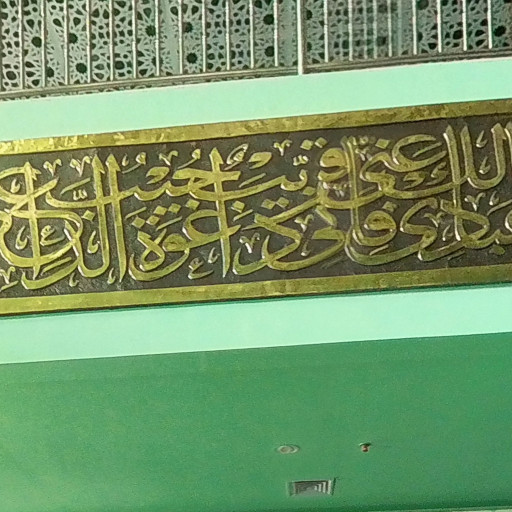 سألك عبادي عني فإني قريب أجيب دعوة الداع